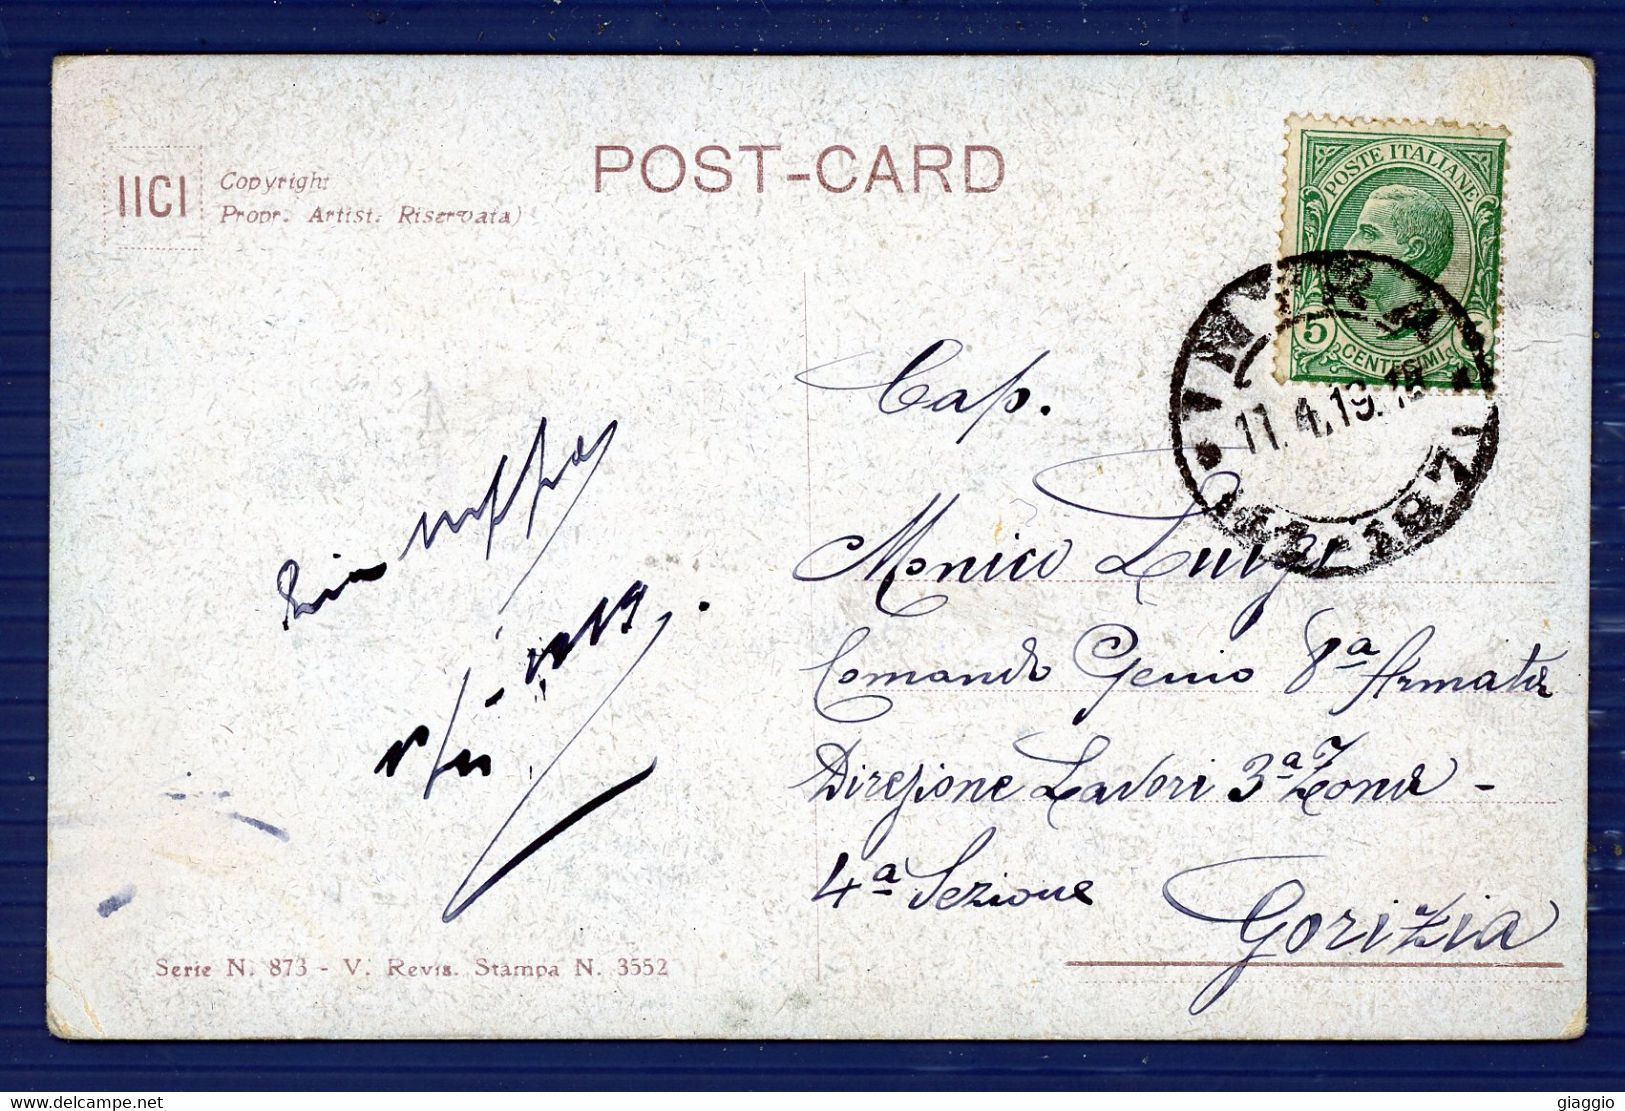 POST-CARD
IICI
Copyright
Propr. Artist. Riservata)
POSTE ITALIANE
5
CENTESIMI
11.4.19.18
Cap.
Monico Luigi
Comando Genio 8ª Armata
Direzione Lavori 3ª Zona -
4ª Sezione
Gorizia
Serie N. 873 - V. Revis. Stampa N. 3552
delcampe.net
giaggio